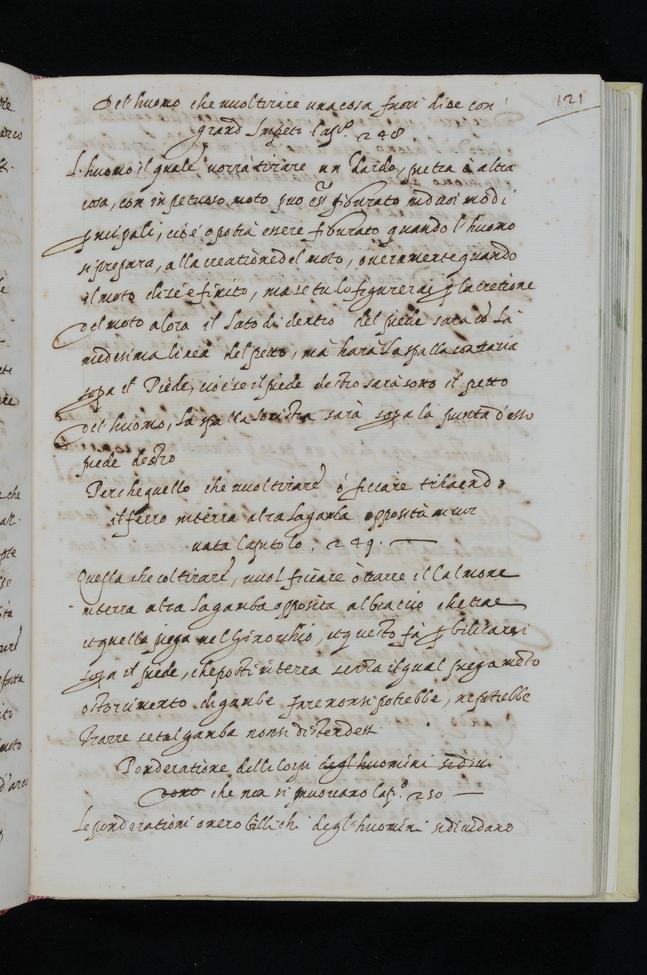 121
Del huomo che vuol tirare una cosa fuori di se con
grand Impeto Cap.º 248
L'huomo il quale vorrà tirare un Dardo, pietra ò altra
cosa, con impetuoso moto, può ess.r figurato in duoi modi
principali, cioè o potrà essere figurato quando l'huomo
si prepara, alla creatione del moto, o veramente quando
il moto di se è finito, ma se tu lo figurerai p la cretione
del moto alora il lato di dentro del piede sarà cō la
medesima linea del petto, ma harà la spalla contraria
sopa il Piede, cioè se il piede destro sarà sotto il petto
del huomo, la spalla sinistra sarà sopa la punta d'esso
piede destro
Perche quello che vuol tirare ò ficcare tirando
il ferro in terra alza la gamba opposita in cur
vata Capitolo, 249.
Quello che col tirare, vuol ficcare ò trarre il Calmone
in terra alza la gamba opposita al braccio che trae
et quella piega nel Ginocchio, et questo fà p bilicarsi
sopa il piede, che posti in terra senza il qual piegamēto
o storcimento di gambe fare non si potrebbe, ne potrebbe
trarre se tal gamba non si distendess
Ponderatione delli Corpi degl'huomini si divi
dono che non si muovano Cap.º 250
Le ponderationi overo billichi degl'huomini si dividano